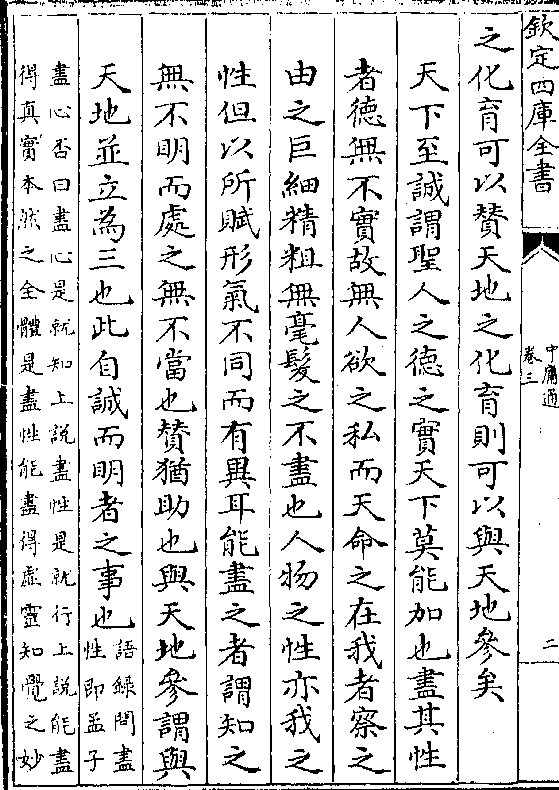 欽定四庫全書
中庸通
卷三
二
之化育可以賛天地之化育則可以與天地參矣
天下至誠謂聖人之德之實天下莫能加也盡其性
者德無不實故無人欲之私而天命之在我者察之
由之巨細精粗無毫髮之不盡也人物之性亦我之
性但以所賦形氣不同而有異耳能盡之者謂知之
無不明而處之無不當也賛猶助也與天地參謂與
天地並立為三也此自誠而明者之事也
語録問盡
性即孟子
盡心否曰盡心是就知上說盡性是就行上說能盡
得真實本然之全體是盡性能盡得虛靈知覺之妙